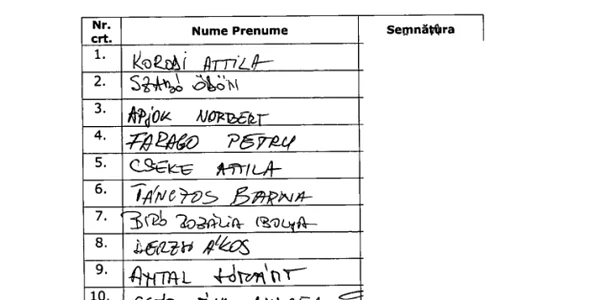 Nr. crt. Nume Prenume Semnătura
1. KORODI ATTILA
2. SZABÓ ÖDÖN
3. APJOK NORBERT
4. FARAGO PETRU
5. CSEKE ATTILA
6. TÁNCZOS BARNA
7. BIRÓ ROZÁLIA IBOLYA
8. DERZSI ÁKOS
9. ANTAL LÓRÁNT
10.